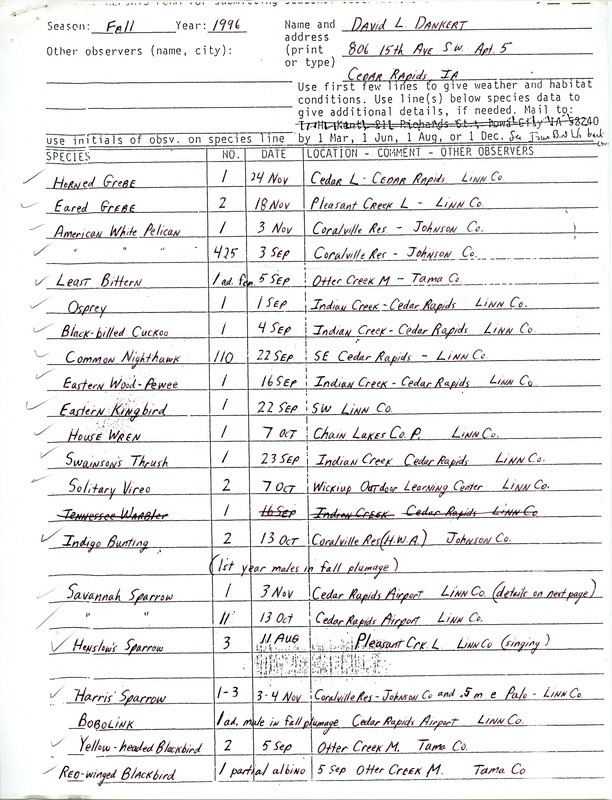 Season: Fall Year: 1996 Name and David L. Dankert
Other observers (name, city): address 806 15th Ave S.W. Apt. 5
(print
or type) Cedar Rapids, IA
Use first few lines to give weather and habitat
conditions. Use line(s) below species data to
give additional details, if needed. Mail to:
use initials of obsv. on species line by 1 Mar, 1 Jun, 1 Aug, or 1 Dec.
SPECIES NO. DATE LOCATION - COMMENT - OTHER OBSERVERS
Horned Grebe 1 24 Nov Cedar L - Cedar Rapids Linn Co
Eared Grebe 2 18 Nov Pleasant Creek L - Linn Co.
American White Pelican 1 3 Nov Coralville Res - Johnson Co.
" " " 425 3 Sep Coralville Res - Johnson Co.
Least Bittern 1 ad. fem 5 Sep Otter Creek M - Tama Co
Osprey 1 1 Sep Indian Creek - Cedar Rapids Linn Co.
Black-billed Cuckoo 1 4 Sep Indian Creek - Cedar Rapids Linn Co.
Common Nighthawk 110 22 Sep SE Cedar Rapids - Linn Co
Eastern Wood-Pewee 1 16 Sep Indian Creek - Cedar Rapids Linn Co
Eastern Kingbird 1 22 Sep SW Linn Co.
House Wren 1 7 Oct Chain Lakes Co. P. Linn Co.
Swainson's Thrush 1 23 Sep Indian Creek Cedar Rapids Linn Co.
Solitary Vireo 2 7 Oct Wickiup Outdoor Learning Center Linn Co.
Tennessee Warbler 1 16 Sep Indian Creek Cedar Rapids Linn Co.
Indigo Bunting 2 13 Oct Coralville Res (H.W.A) Johnson Co.
(1st year males in fall plumage)
Savannah Sparrow 1 3 Nov Cedar Rapids Airport Linn Co. (details on next page)
" " 11 13 Oct Cedar Rapids Airport Linn Co.
Henslow's Sparrow 3 11 Aug Pleasant Crk. L. Linn Co (singing)
Harris' Sparrow 1-3 3-4 Nov Coralville Res - Johnson Co and .5 m e Palo - Linn Co.
Bobolink 1 ad. male in fall plumage Cedar Rapids Airport Linn Co.
Yellow-headed Blackbird 2 5 Sep Otter Creek M. Tama Co.
Red-winged Blackbird 1 partial albino 5 Sep Otter Creek M. Tama Co